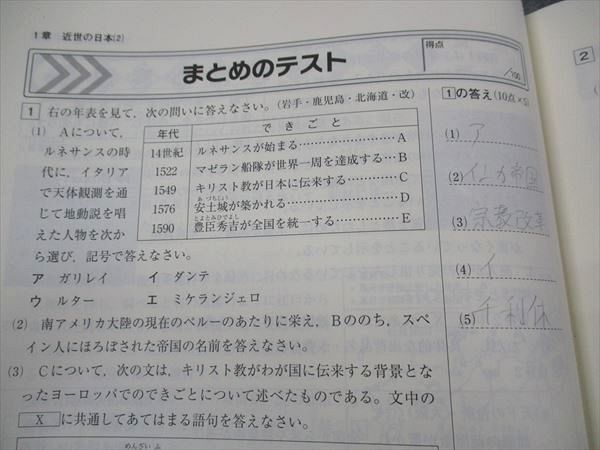 1章 近世の日本(2)
まとめのテスト
得点
/100
1 右の年表を見て，次の問いに答えなさい。(岩手・鹿児島・北海道・改)
(1) Aについて，
ルネサンスの時
代に，イタリア
で天体観測を通
じて地動説を唱
えた人物を次か
ら選び，記号で答えなさい。
年代 できごと
14世紀 ルネサンスが始まる……A
1522 マゼラン船隊が世界一周を達成する…B
1549 キリスト教が日本に伝来する……C
1576 安土城が築かれる……D
あづちじょう
1590 豊臣秀吉が全国を統一する……E
とよとみひでよし
ア ガリレイ イ ダンテ
ウ ルター エ ミケランジェロ
(2) 南アメリカ大陸の現在のペルーのあたりに栄え，Bののち，スペ
イン人にほろぼされた帝国の名前を答えなさい。
(3) Cについて，次の文は，キリスト教がわが国に伝来する背景とな
ったヨーロッパでのできごとについて述べたものである。文中の
X に共通してあてはまる語句を答えなさい。
めんざいふ
1の答え (10点×5)
(1) ア
(2) インカ帝国
(3) 宗教改革
(4) イ
(5) 千利休
2